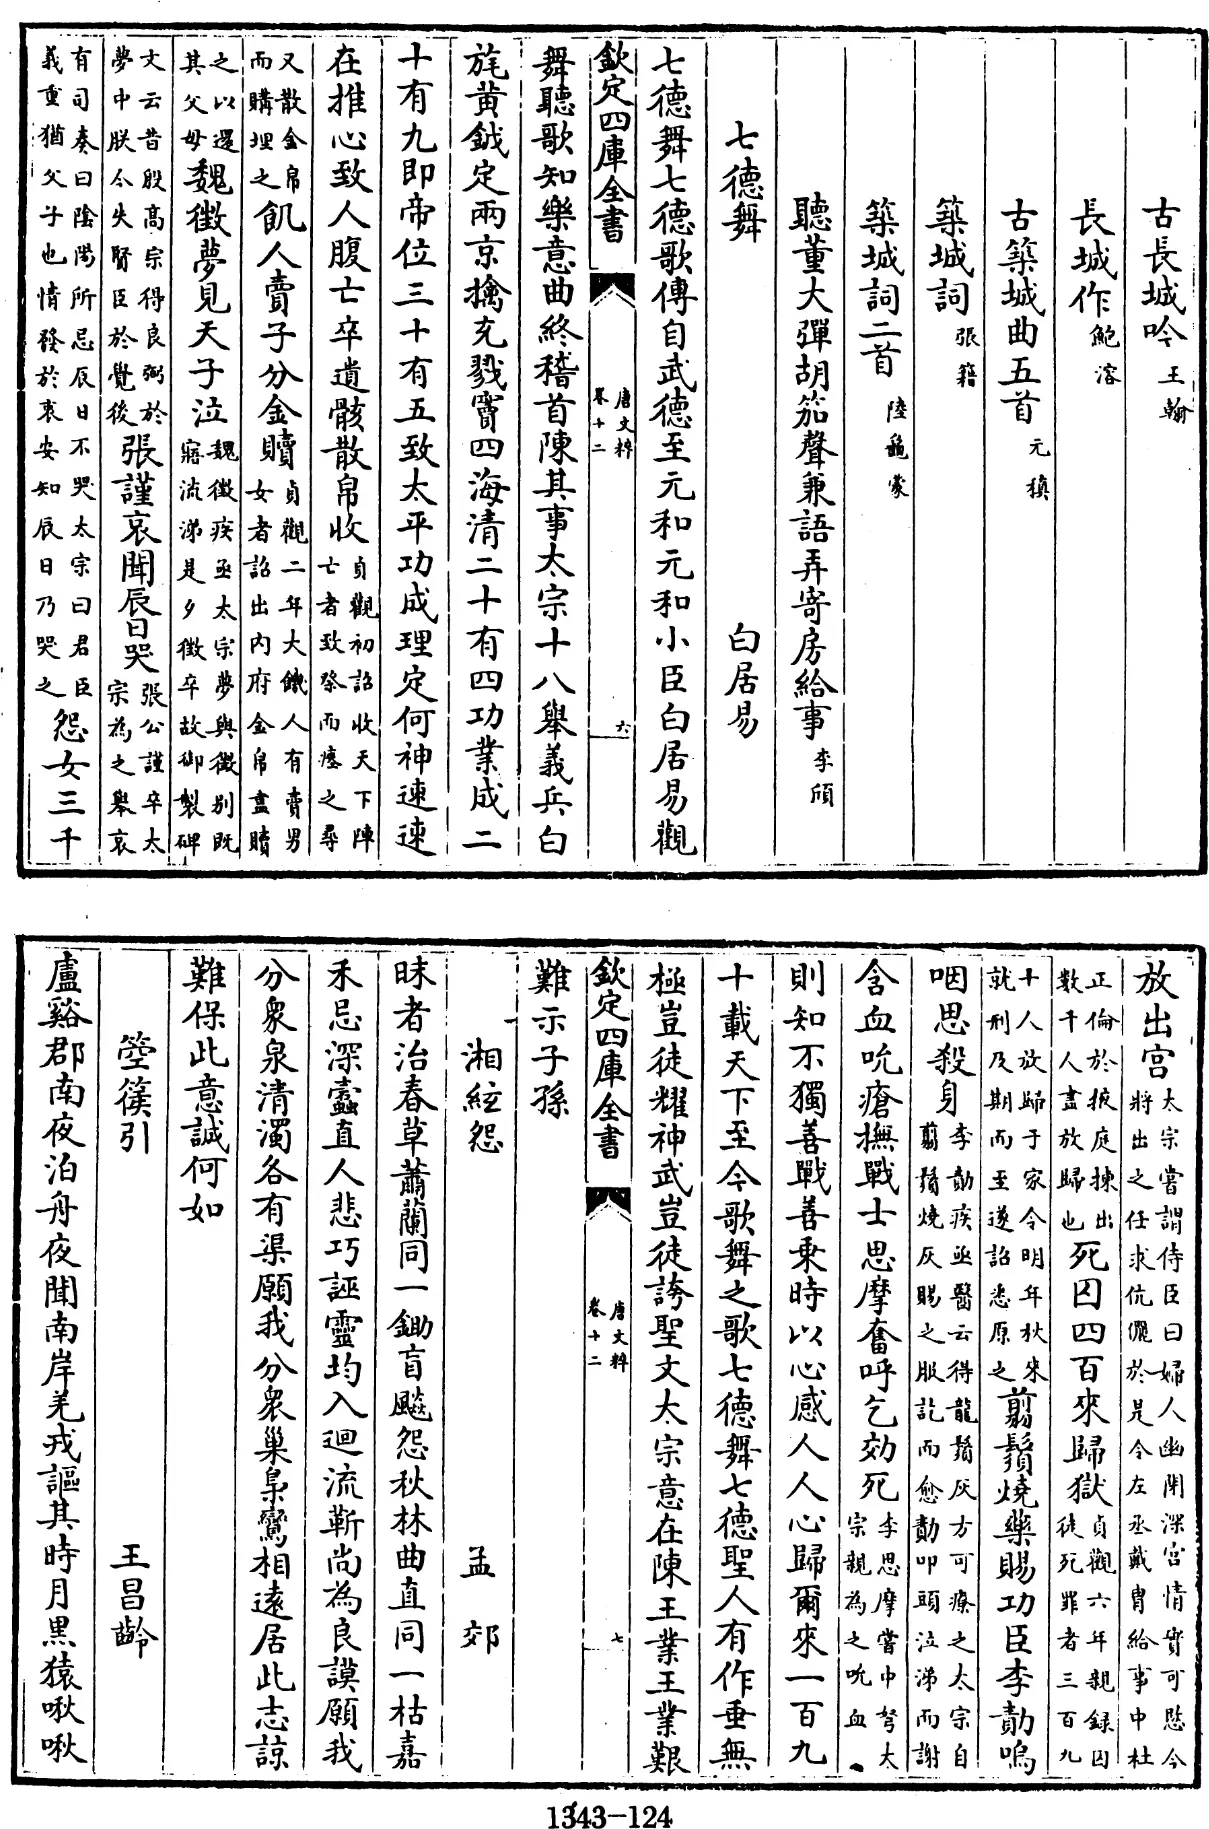 古長城吟 王翰
長城作 鮑溶
古築城曲五首 元稹
築城詞 張籍
築城詞二首 陸龜蒙
聽董大彈胡笳聲兼語弄寄房給事 李頎
七德舞 白居易
七德舞七德歌傳自武德至元和元和小臣白居易觀
欽定四庫全書 唐文粹 卷十二 六
舞聽歌知樂意曲終稽首陳其事太宗十八舉義兵白
旄黄鉞定兩京擒充戮竇四海清二十有四功業成二
十有九即帝位三十有五致太平功成理定何神速速
在推心致人腹亡卒遺骸散帛收貞觀初詔收天下陣亡者致祭而瘞之尋
又散金帛而購埋之飢人賣子分金贖貞觀二年大饑人有賣男女者詔出内府金帛盡贖
之以還其父母魏徵夢見天子泣魏徵疾亟太宗夢與徵别既寤流涕是夕徵卒故御製碑
文云昔殷高宗得良弼於夢中朕今失賢臣於覺後張謹哀聞辰日哭張公謹卒太宗為之舉哀
有司奏曰陰陽所忌辰日不哭太宗曰君臣義重猶父子也情發於衷安知辰日乃哭之怨女三千
放出宫太宗嘗謂侍臣曰婦人幽閉深宫情實可愍今將出之任求伉儷於是令左丞戴胄給事中杜
正倫於掖庭揀出數千人盡放歸也死囚四百來歸獄貞觀六年親録囚徒死罪者三百九
十人放歸于家令明年秋來就刑及期而至遂詔悉原之翦鬚燒藥賜功臣李勣嗚
咽思殺身李勣疾亟醫云得龍鬚灰方可療之太宗自翦鬚燒灰賜之服訖而愈勣叩頭泣涕而謝
含血吮瘡撫戰士思摩奮呼乞効死李思摩嘗中弩太宗親為之吮血
則知不獨善戰善乘時以心感人人心歸爾來一百九
十載天下至今歌舞之歌七德舞七德聖人有作垂無
極豈徒耀神武豈徒誇聖文太宗意在陳王業王業艱
欽定四庫全書 唐文粹 卷十二 七
難示子孫
湘絃怨 孟郊
昧者治春草蕭蘭同一鋤盲飈怨秋林曲直同一枯嘉
禾忌深蠹直人悲巧誣靈均入迴流靳尚為良謨願我
分衆泉清濁各有渠願我分衆巢梟鸞相遠居此志諒
難保此意誠何如
箜篌引 王昌齡
盧谿郡南夜泊舟夜聞南岸羌戎謳其時月黒猿啾啾
1343-124